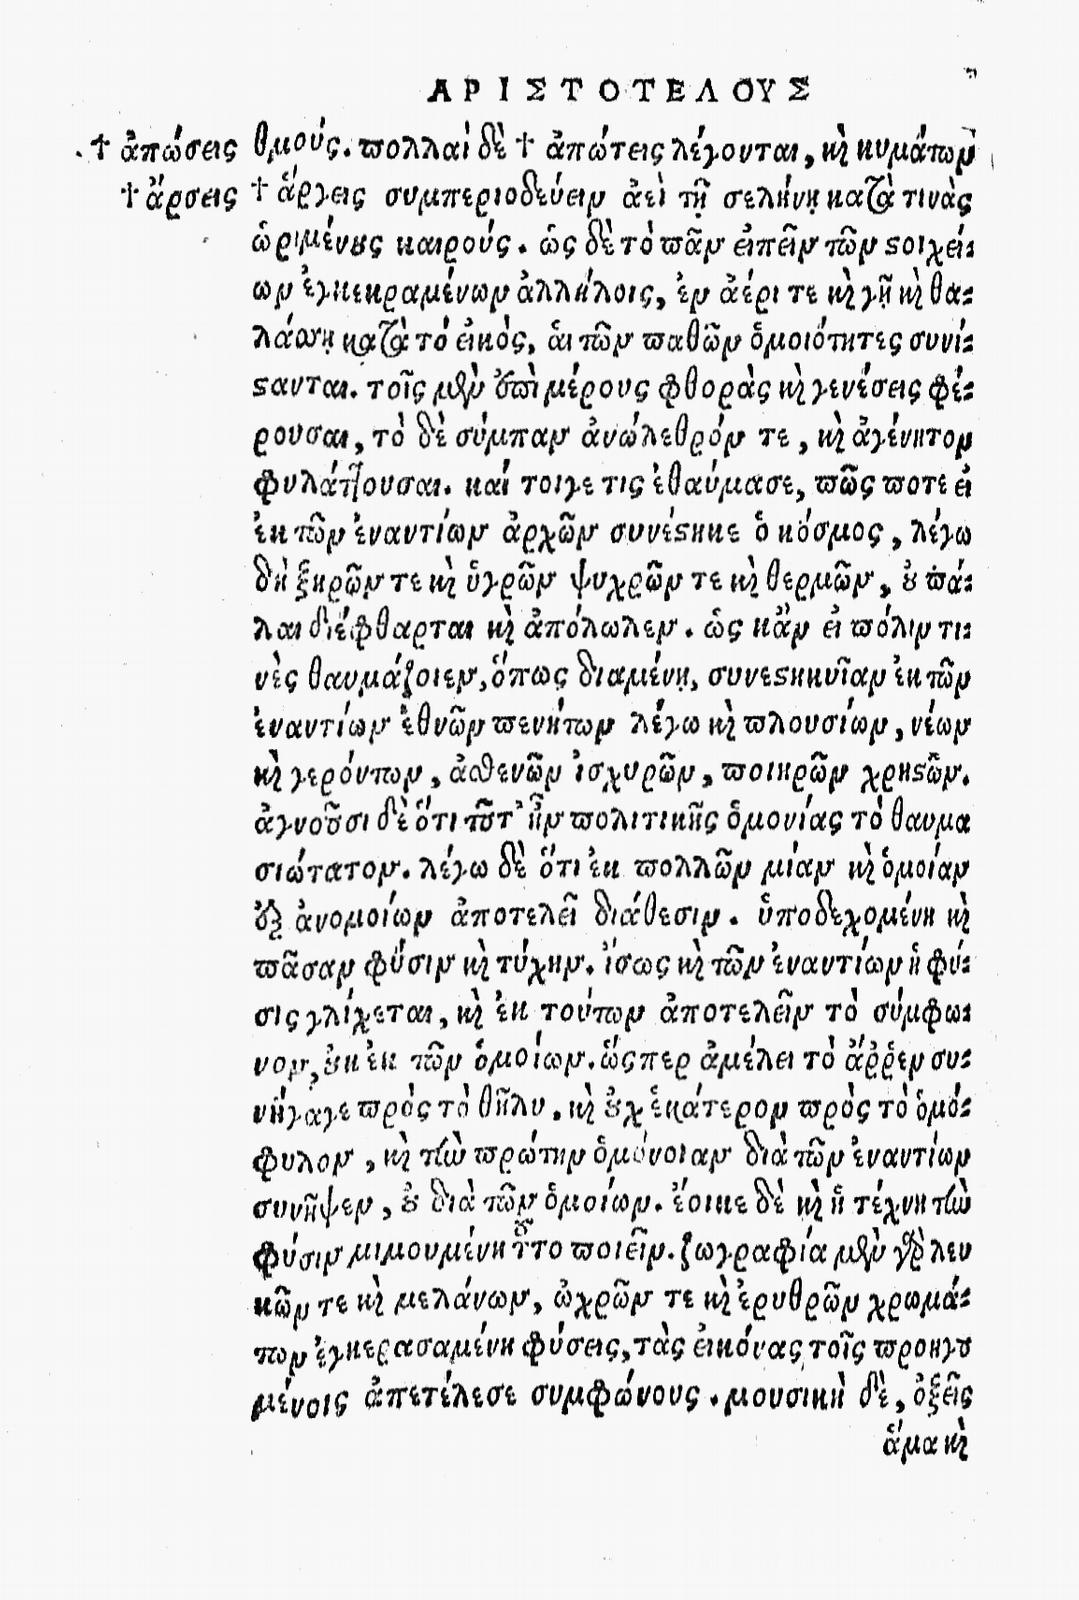 ΑΡΙΣΤΟΤΕΛΟΥΣ
† ἀπώσεις θμούς. πολλαὶ δὲ † ἀπώτεις λέγονται, καὶ κυμάτων
† ἄρσεις † ἄργεις συμπεριοδεύειν ἀεὶ τῇ σελήνῃ κατὰ τινὰς
ὡριμένους καιρούς. ὡς δὲ τὸ πᾶν εἰπεῖν τῶν στοιχεί-
ων ἐγκεκραμένων ἀλλήλοις, ἐν ἀέρι τε καὶ γῇ καὶ θα-
λάσσῃ κατὰ τὸ εἰκὸς, αἱ τῶν παθῶν ὁμοιότητες συνί-
στανται. τοῖς μὲν ἐπὶ μέρους φθορὰς καὶ γενέσεις φέ-
ρουσαι, τὸ δὲ σύμπαν ἀνώλεθρόν τε, καὶ ἀγένητον
φυλάττουσαι. καί τοιγε τις ἐθαύμασε, πῶς ποτε εἰ
ἐκ τῶν ἐναντίων ἀρχῶν συνέστηκε ὁ κόσμος, λέγω
δὴ ξηρῶν τε καὶ ὑγρῶν ψυχρῶν τε καὶ θερμῶν, οὐ πά-
λαι διέφθαρται καὶ ἀπόλωλεν. ὡς κἂν εἰ πόλιν τι-
νὲς θαυμάζοιεν, ὅπως διαμένῃ, συνεστηκυῖαν ἐκ τῶν
ἐναντίων ἐθνῶν πενήτων λέγω καὶ πλουσίων, νέων
καὶ γερόντων, ἀσθενῶν ἰσχυρῶν, ποιηρῶν χρηστῶν.
ἀγνοῦσι δὲ ὅτι τοῦτ' ἦν πολιτικῆς ὁμονίας τὸ θαυμα
σιώτατον. λέγω δὲ ὅτι ἐκ πολλῶν μίαν καὶ ὁμοίαν
ἐξ ἀνομοίων ἀποτελεῖ διάθεσιν. ὑποδεχομένη καὶ
πᾶσαν φύσιν καὶ τύχην. ἴσως καὶ τῶν ἐναντίων ἡ φύ-
σις γλίχεται, καὶ ἐκ τούτων ἀποτελεῖν τὸ σύμφω-
νον, οὐκ ἐκ τῶν ὁμοίων. ὥσπερ ἀμέλει τὸ ἄῤῥεν συ-
νήγαγε πρὸς τὸ θῆλυ. καὶ οὐχ ἑκάτερον πρὸς τὸ ὁμό-
φυλον, καὶ τὴν πρώτην ὁμόνοιαν διὰ τῶν ἐναντίων
συνῆψεν, οὐ διὰ τῶν ὁμοίων. ἔοικε δὲ καὶ ἡ τέχνη τὴν
φύσιν μιμουμένη τοῦτο ποιεῖν. ζωγραφία μὲν γὰρ λευ
κῶν τε καὶ μελάνων, ὠχρῶν τε καὶ ἐρυθρῶν χρωμά-
των ἐγκερασαμένη φύσεις, τὰς εἰκόνας τοῖς προηγου
μένοις ἀπετέλεσε συμφώνους. μουσικὴ δὲ, ὀξεῖς
ἅμα καὶ